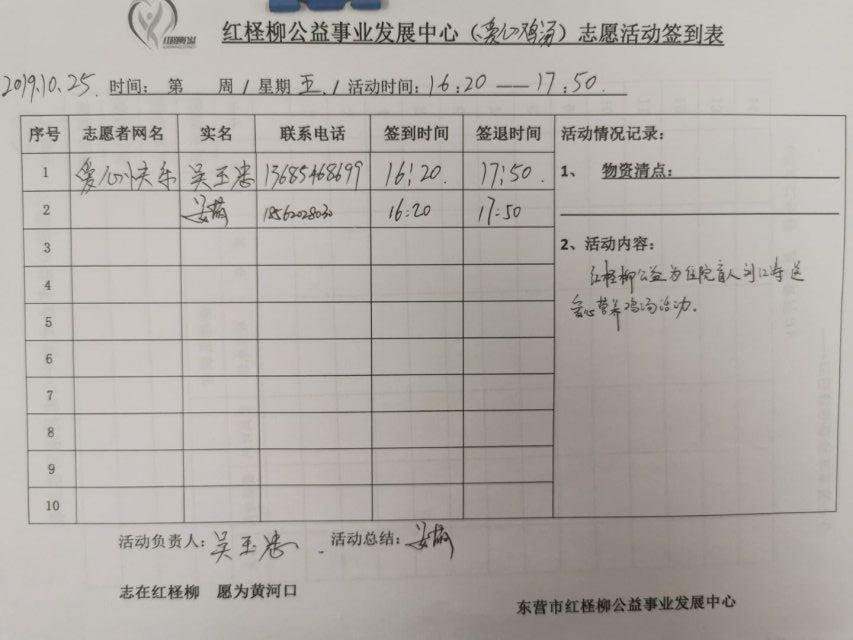 红柽柳公益事业发展中心（爱心鸡汤）志愿活动签到表
2019.10.25. 时间： 第 周 / 星期 五 / 活动时间：16:20 — 17:50.
序号 志愿者网名 实名 联系电话 签到时间 签退时间 活动情况记录：
1 爱心快乐 吴玉忠 13685468699 16:20 17:50. 1、 物资清点：
2 18562028030 16:20 17:50
3 2、活动内容：
4 红柽柳公益为住院盲人刘江涛送
5 爱心营养鸡汤活动.
6
7
8
9
10
活动负责人：吴玉忠 . 活动总结：
志在红柽柳 愿为黄河口
东营市红柽柳公益事业发展中心